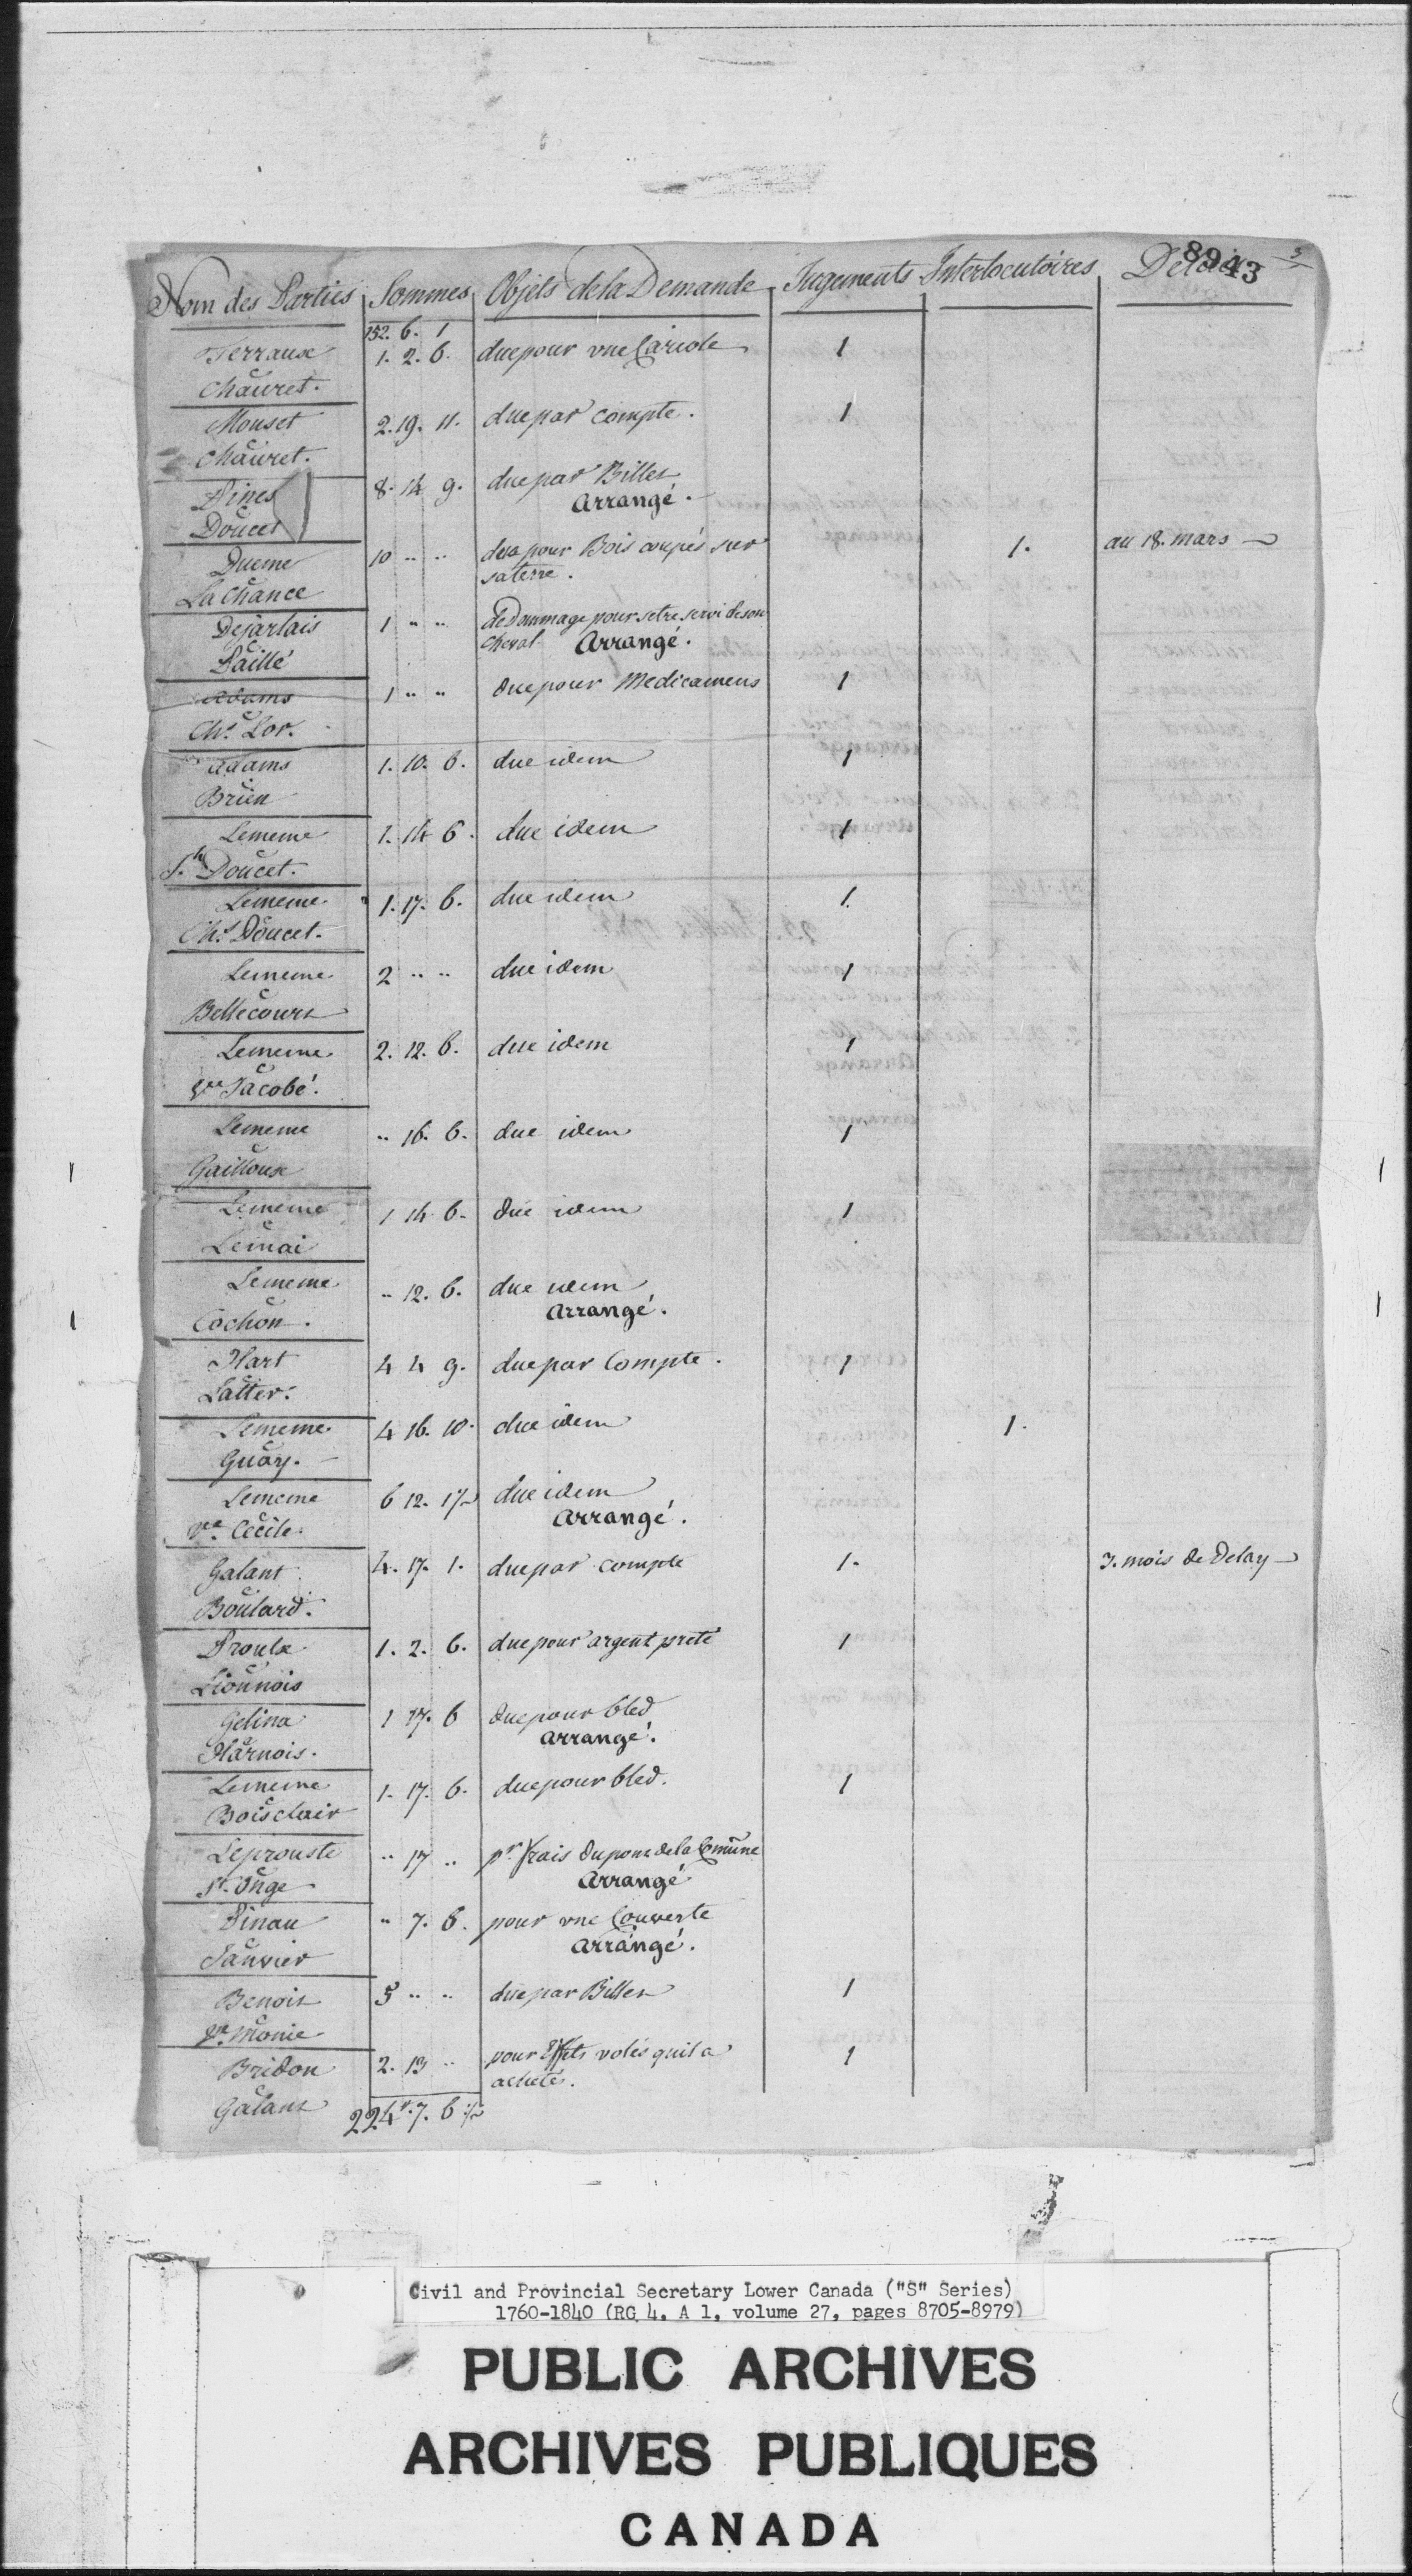 8943
3
Nom des Parties Sommes Objets de la Demande Jugements Interlocutoires Delais
152. 6. 1
Ferraux 1. 2. 6. due pour une Cariole 1
C
Chauret.
Mouset 2. 19. 11. due par compte. 1
C
Chauret.
Pines 8. 14 9. due par Billet
C Arrangé.
Doucet
Dueme 10 .. .. pour Bois coupés sur 1. au 18. mars
C sa terre.
La Chance
Dejarlais 1 .. .. de Dommage pour setre servi de son
C cheval Arrangé.
Paillé
Adams 1 .. .. due pour Medicamens 1
C
Chs. Lor.
Adams 1. 10. 6. due idem 1
C
Brien
Lememe 1. 14 6. due idem 1
C
Doucet.
Lememe 1. 17. 6. due idem 1.
C
Chs. Doucet.
Lememe 2 .. .. due idem 1
C
Bellecourt
Lememe 2. 12. 6. due idem 1
C
Vve Jacobé.
Lememe .. 16. 6. due idem 1
C
Gailloux
Lememe 1 14 6. due idem 1
C
Lemai
Lememe .. 12. 6. due idem
C Arrangé.
Cochon.
Hart 4 4 9. due par Compte. 1
C
Latter.
Lememe 4 16. 10. due idem 1.
C
Guay.
Lememe 6 12. 1½ due idem
C Arrangé.
Vve Cecile.
Galant 4. 17. 1. due par compte 1. 3. mois de Delay
C
Boulard.
Proulx 1. 2. 6. due pour argent preté 1
C
Lionnois
Gelina 1 17. 6 due pour bled
C Arrangé.
Harnois.
Lememe 1. 17. 6. due pour bled. 1
C
Boisclair
Leprouste .. 17 .. pr. frais du pont de la Comũne
C Arrangé
St. Onge
Pinau .. 7. 6. pour une Couverte
C Arrangé.
Janvier
Benoit 5 .. .. due par Billet 1
C
Vve Monie
Bridon 2. 13 .. pour Effets volés quil a 1
C achetés.
Galant
224. 7. 6 ½
Civil and Provincial Secretary Lower Canada ("S" Series)
1760-1840 (RG 4, A 1, volume 27, pages 8705-8979)
PUBLIC ARCHIVES
ARCHIVES PUBLIQUES
CANADA